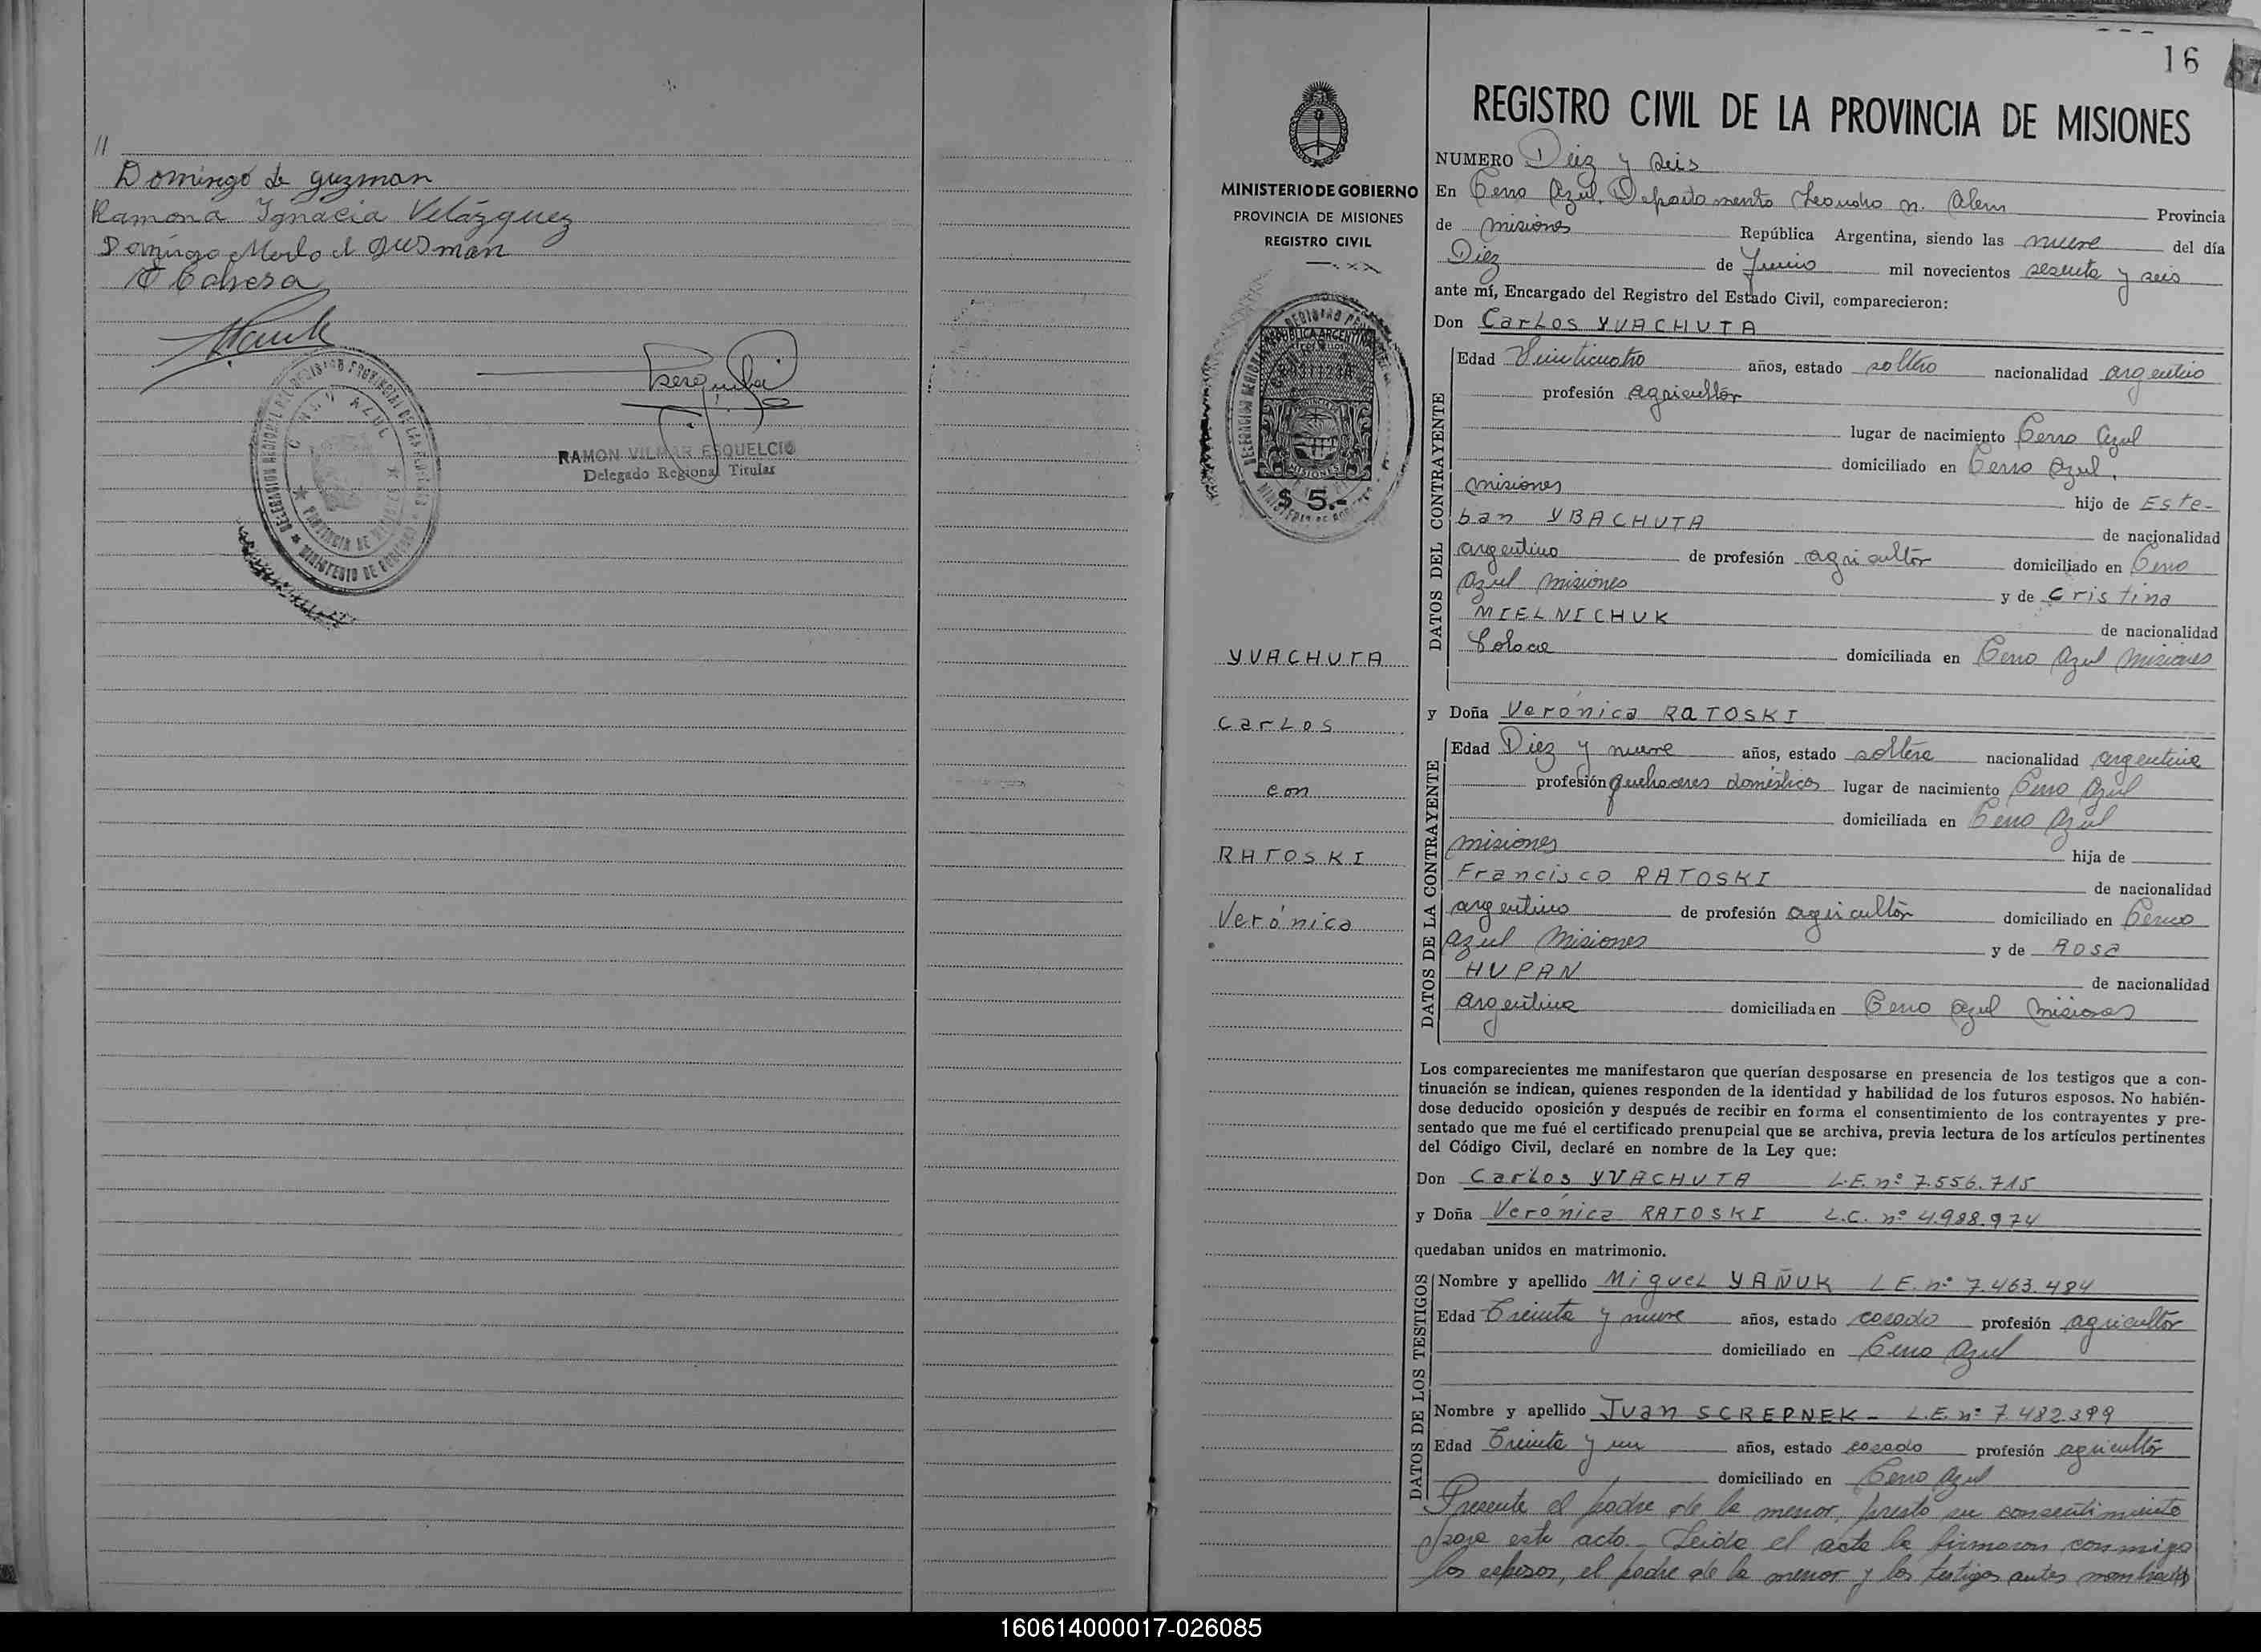 11
Domingo de guzman
Ramona Ignacia Velázquez
Domingo Merlo d guzman
Cabrera
RAMON VILMAR ESQUELCIO
Delegado Regional Titular
16
MINISTERIO DE GOBIERNO
PROVINCIA DE MISIONES
REGISTRO CIVIL
REPUBLICA ARGENTINA
MISIONES
$ 5.-
YVACHUTA
Carlos
con
RATOSKI
Verónica
REGISTRO CIVIL DE LA PROVINCIA DE MISIONES
NUMERO Diez y seis
En Cerro Azul, Departamento Leandro n. Alem Provincia
de misiones República Argentina, siendo las nueve del día
Diez de Junio mil novecientos sesenta y seis
ante mí, Encargado del Registro del Estado Civil, comparecieron:
Don Carlos YVACHUTA
DATOS DEL CONTRAYENTE
Edad Veinticuatro años, estado soltero nacionalidad argentino
profesión agricultor
lugar de nacimiento Cerro Azul
domiciliado en Cerro Azul,
misiones hijo de Este-
ban YBACHUTA de nacionalidad
argentino de profesión agricultor domiciliado en Cerro
Azul misiones y de Cristina
MIELNICHUK de nacionalidad
Polaca domiciliada en Cerro Azul misiones
y Doña Verónica RATOSKI
DATOS DE LA CONTRAYENTE
Edad Diez y nueve años, estado soltera nacionalidad argentina
profesión quehaceres domésticos lugar de nacimiento Cerro Azul
domiciliada en Cerro Azul
misiones hija de
Francisco RATOSKI de nacionalidad
argentino de profesión agricultor domiciliado en Cerro
Azul Misiones y de Rosa
HUPAN de nacionalidad
argentina domiciliada en Cerro Azul misiones
Los comparecientes me manifestaron que querían desposarse en presencia de los testigos que a con-
tinuación se indican, quienes responden de la identidad y habilidad de los futuros esposos. No habién-
dose deducido oposición y después de recibir en forma el consentimiento de los contrayentes y pre-
sentado que me fué el certificado prenupcial que se archiva, previa lectura de los artículos pertinentes
del Código Civil, declaré en nombre de la Ley que:
Don Carlos YVACHUTA L.E. nº 7.556.715
y Doña Verónica RATOSKI L.C. nº 4.988.974
quedaban unidos en matrimonio.
DATOS DE LOS TESTIGOS
Nombre y apellido Miguel YAÑUK L E. nº 7.463.484
Edad Treinta y nueve años, estado casado profesión agricultor
domiciliado en Cerro Azul
Nombre y apellido Juan SCREPNEK - L.E. nº 7.482.399
Edad Treinta y un años, estado casado profesión agricultor
domiciliado en Cerro Azul
Presente el padre de la menor, presto su consentimiento
para este acto.- Leida el acta la firmaron conmigo
los esposos, el padre de la menor y los testigos antes nombrados
160614000017-026085